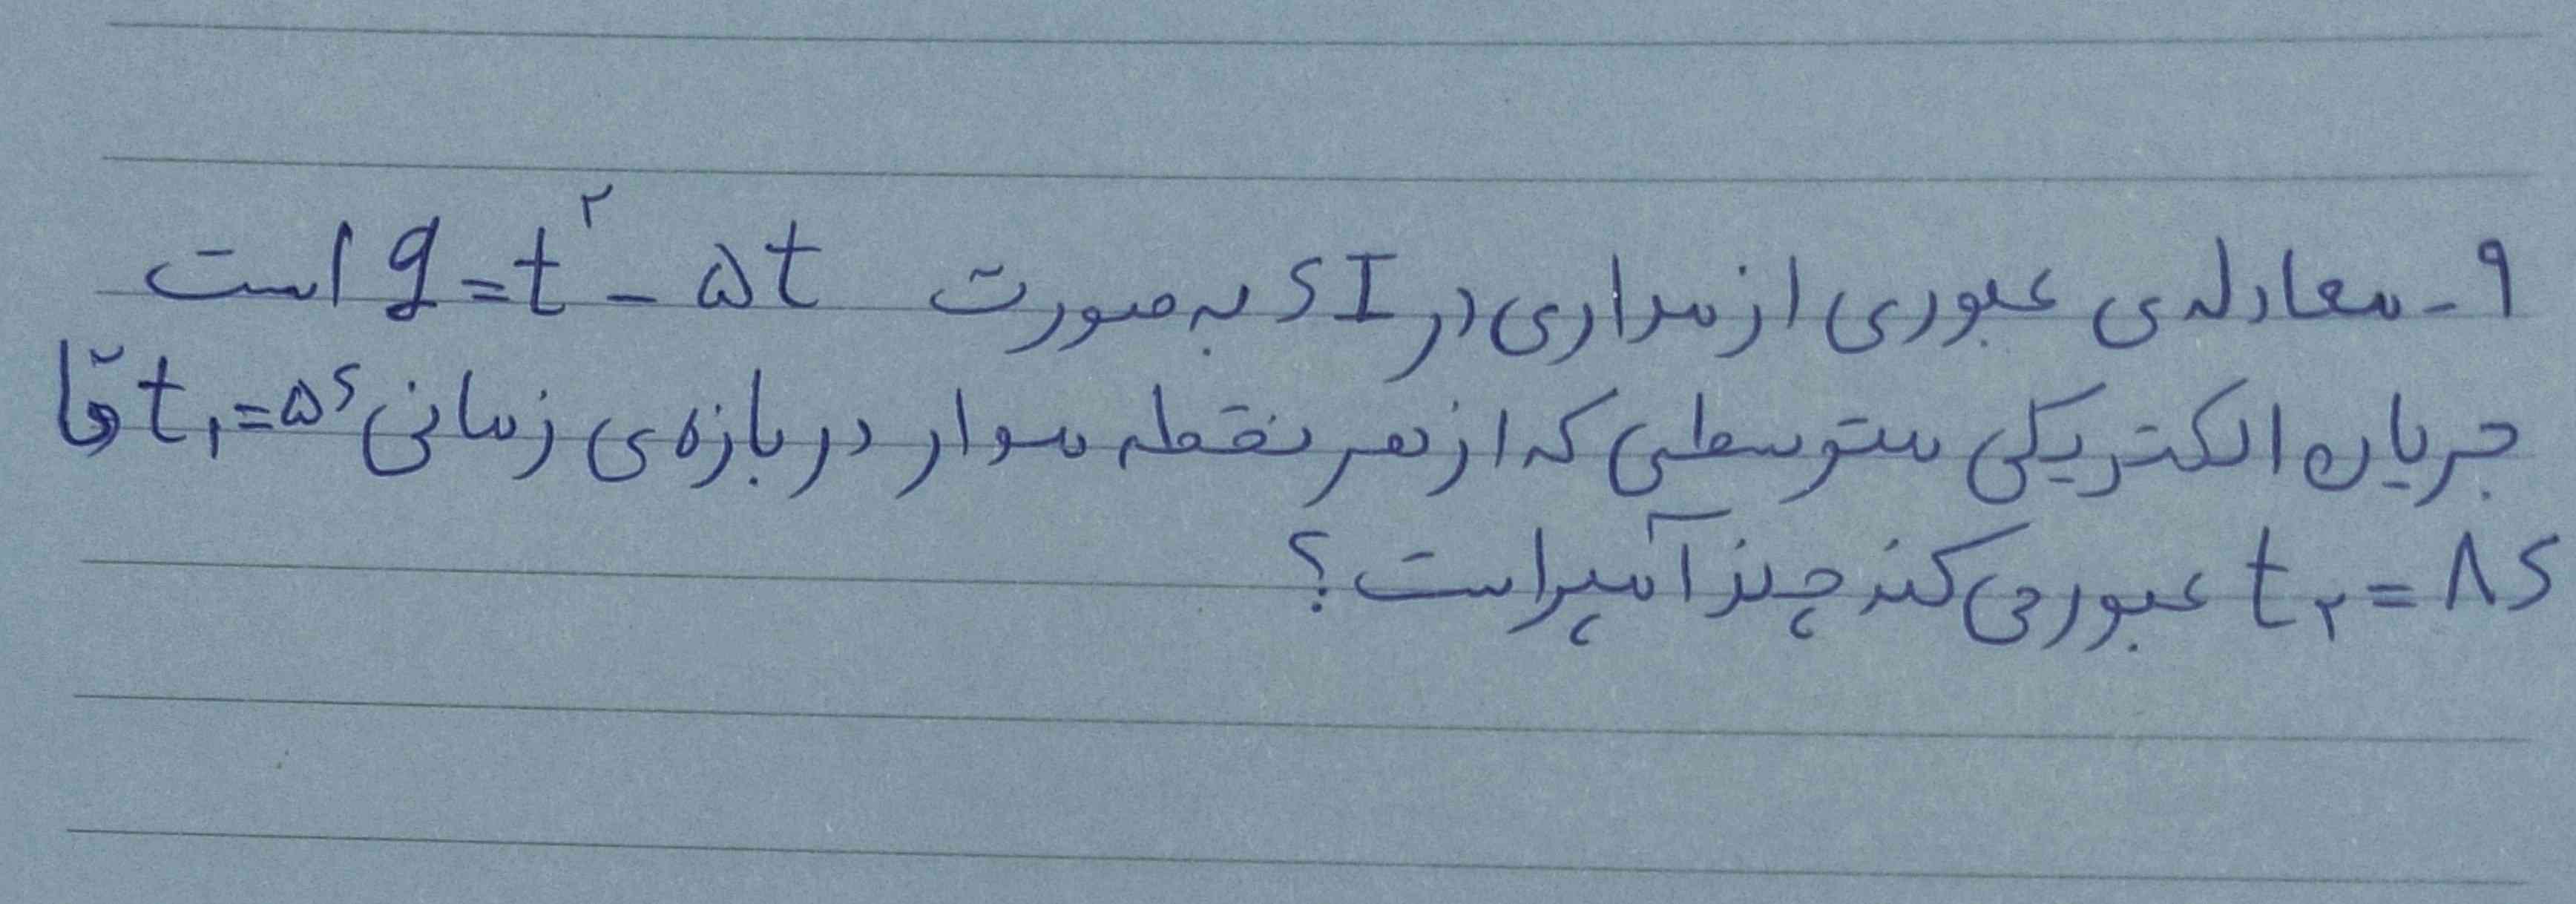 ۹- معادله ی عبوری از مداری در SI به صورت q = t^۲ - ۵t است
جریان الکتریکی متوسطی که از هر نقطه مدار در بازه ی زمانی t۱=۵s تا
t۲ = ۸s عبور می کند چند آمپر است؟